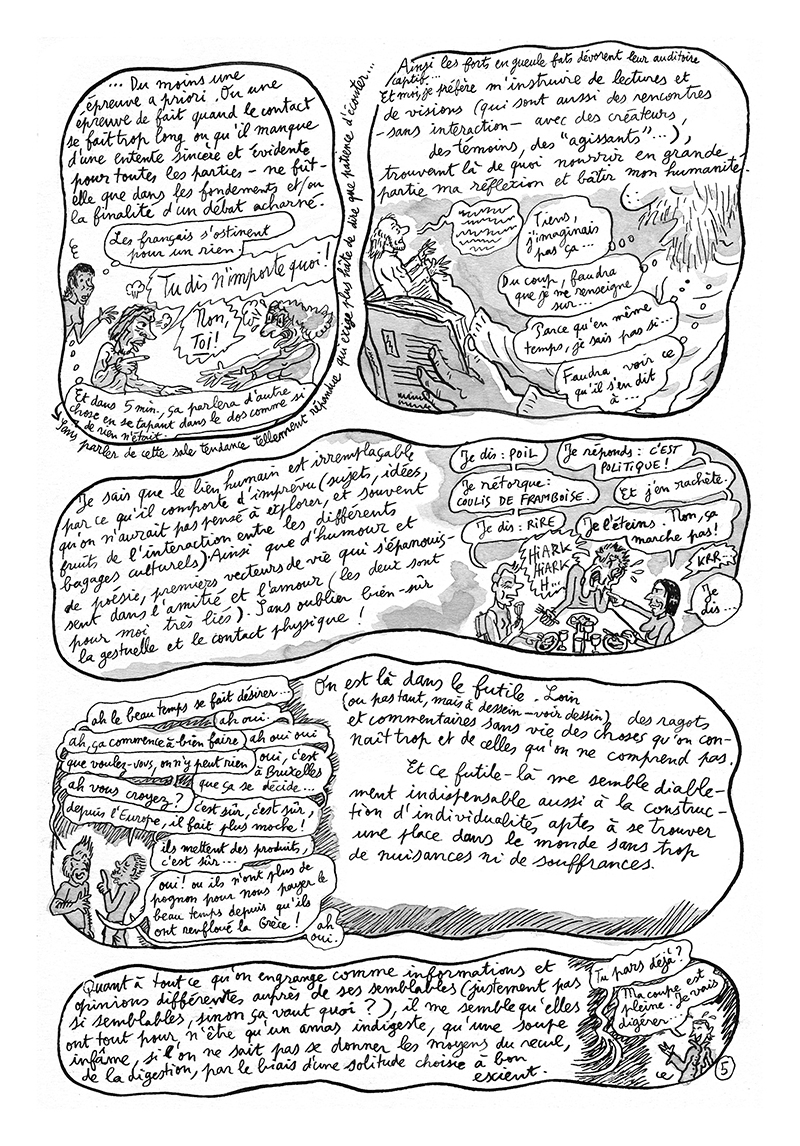 ... Du moins une
épreuve a priori. Ou une
épreuve de fait quand le contact
se fait trop long ou qu'il manque
d'une entente sincère et évidente
pour toutes les parties – ne fût-
elle que dans les fondements et/ou
la finalité d'un débat acharné.
Les français s'ostinent
pour un rien !
Tu dis n'importe quoi !
Non,
Toi !
Toi
Et dans 5 min., ça parlera d'autre
chose en se tapant dans le dos comme si
de rien n'était.
Sans parler de cette sale tendance tellement répandue qui exige plus hâte de dire que patience d'écouter...
Ainsi les forts en gueule fats dévorent leur auditoire
captif...
Et moi, je préfère m'instruire de lectures et
de visions (qui sont aussi des rencontres
– sans interaction – avec des créateurs,
des témoins, des "agissants"...),
trouvant là de quoi nourrir en grande
partie ma réflexion et bâtir mon humanité.
Tiens,
j'imaginais
pas ça...
Du coup, faudra
que je me renseigne
sur...
Parce qu'en même
temps, je sais pas si...
Faudra voir ce
qu'il s'en dit
à ...
Je sais que le bien humain est irremplaçable
par ce qu'il comporte d'imprévu (sujets, idées,
qu'on n'aurait pas pensé à explorer, et souvent
fruits de l'interaction entre les différents
bagages culturels). Ainsi que d'humour et
de poésie, premiers vecteurs de vie qui s'épanouis-
sent dans l'amitié et l'amour (les deux sont
pour moi très liés). Sans oublier bien-sûr
la gestuelle et le contact physique !
Je dis : POIL
Je réponds : C'EST
POLITIQUE !
Je rétorque :
COULIS DE FRAMBOISE.
Et j'en rachète.
Je dis : RIRE
Je l'éteins. Non, ça
marche pas !
HiARK
HiARK
H...
KRR...
Je
dis...
ah le beau temps se fait désirer...
ah oui.
ah, ça commence à bien faire
ah oui oui
que voulez-vous, on n'y peut rien
oui, c'est
à Bruxelles
que ça se décide...
ah vous croyez ?
depuis l'Europe, il fait plus moche !
c'est sûr, c'est sûr,
ils mettent des produits,
c'est sûr...
oui ! ou ils n'ont plus de
pognon pour nous payer le
beau temps depuis qu'ils
ont renfloué la Grèce !
ah
oui.
On est là dans le futile. Loin
(ou pas tant, mais à dessein – voir dessin) des ragots
et commentaires sans vie des choses qu'on con-
naît trop et de celles qu'on ne comprend pas.
Et ce futile-là me semble diable-
ment indispensable aussi à la construc-
tion d'individualités aptes à se trouver
une place dans le monde sans trop
de nuisances ni de souffrances.
Quant à tout ce qu'on engrange comme informations et
opinions différentes auprès de ses semblables (justement pas
si semblables, sinon ça vaut quoi ?), il me semble qu'elles
ont tout pour n'être qu'un amas indigeste, qu'une soupe
infâme, si l'on ne sait pas se donner les moyens du recul,
de la digestion, par le biais d'une solitude choisie à bon
escient.
Tu pars déjà ?
Ma coupe est
pleine. Je vais
digérer...
ce
5